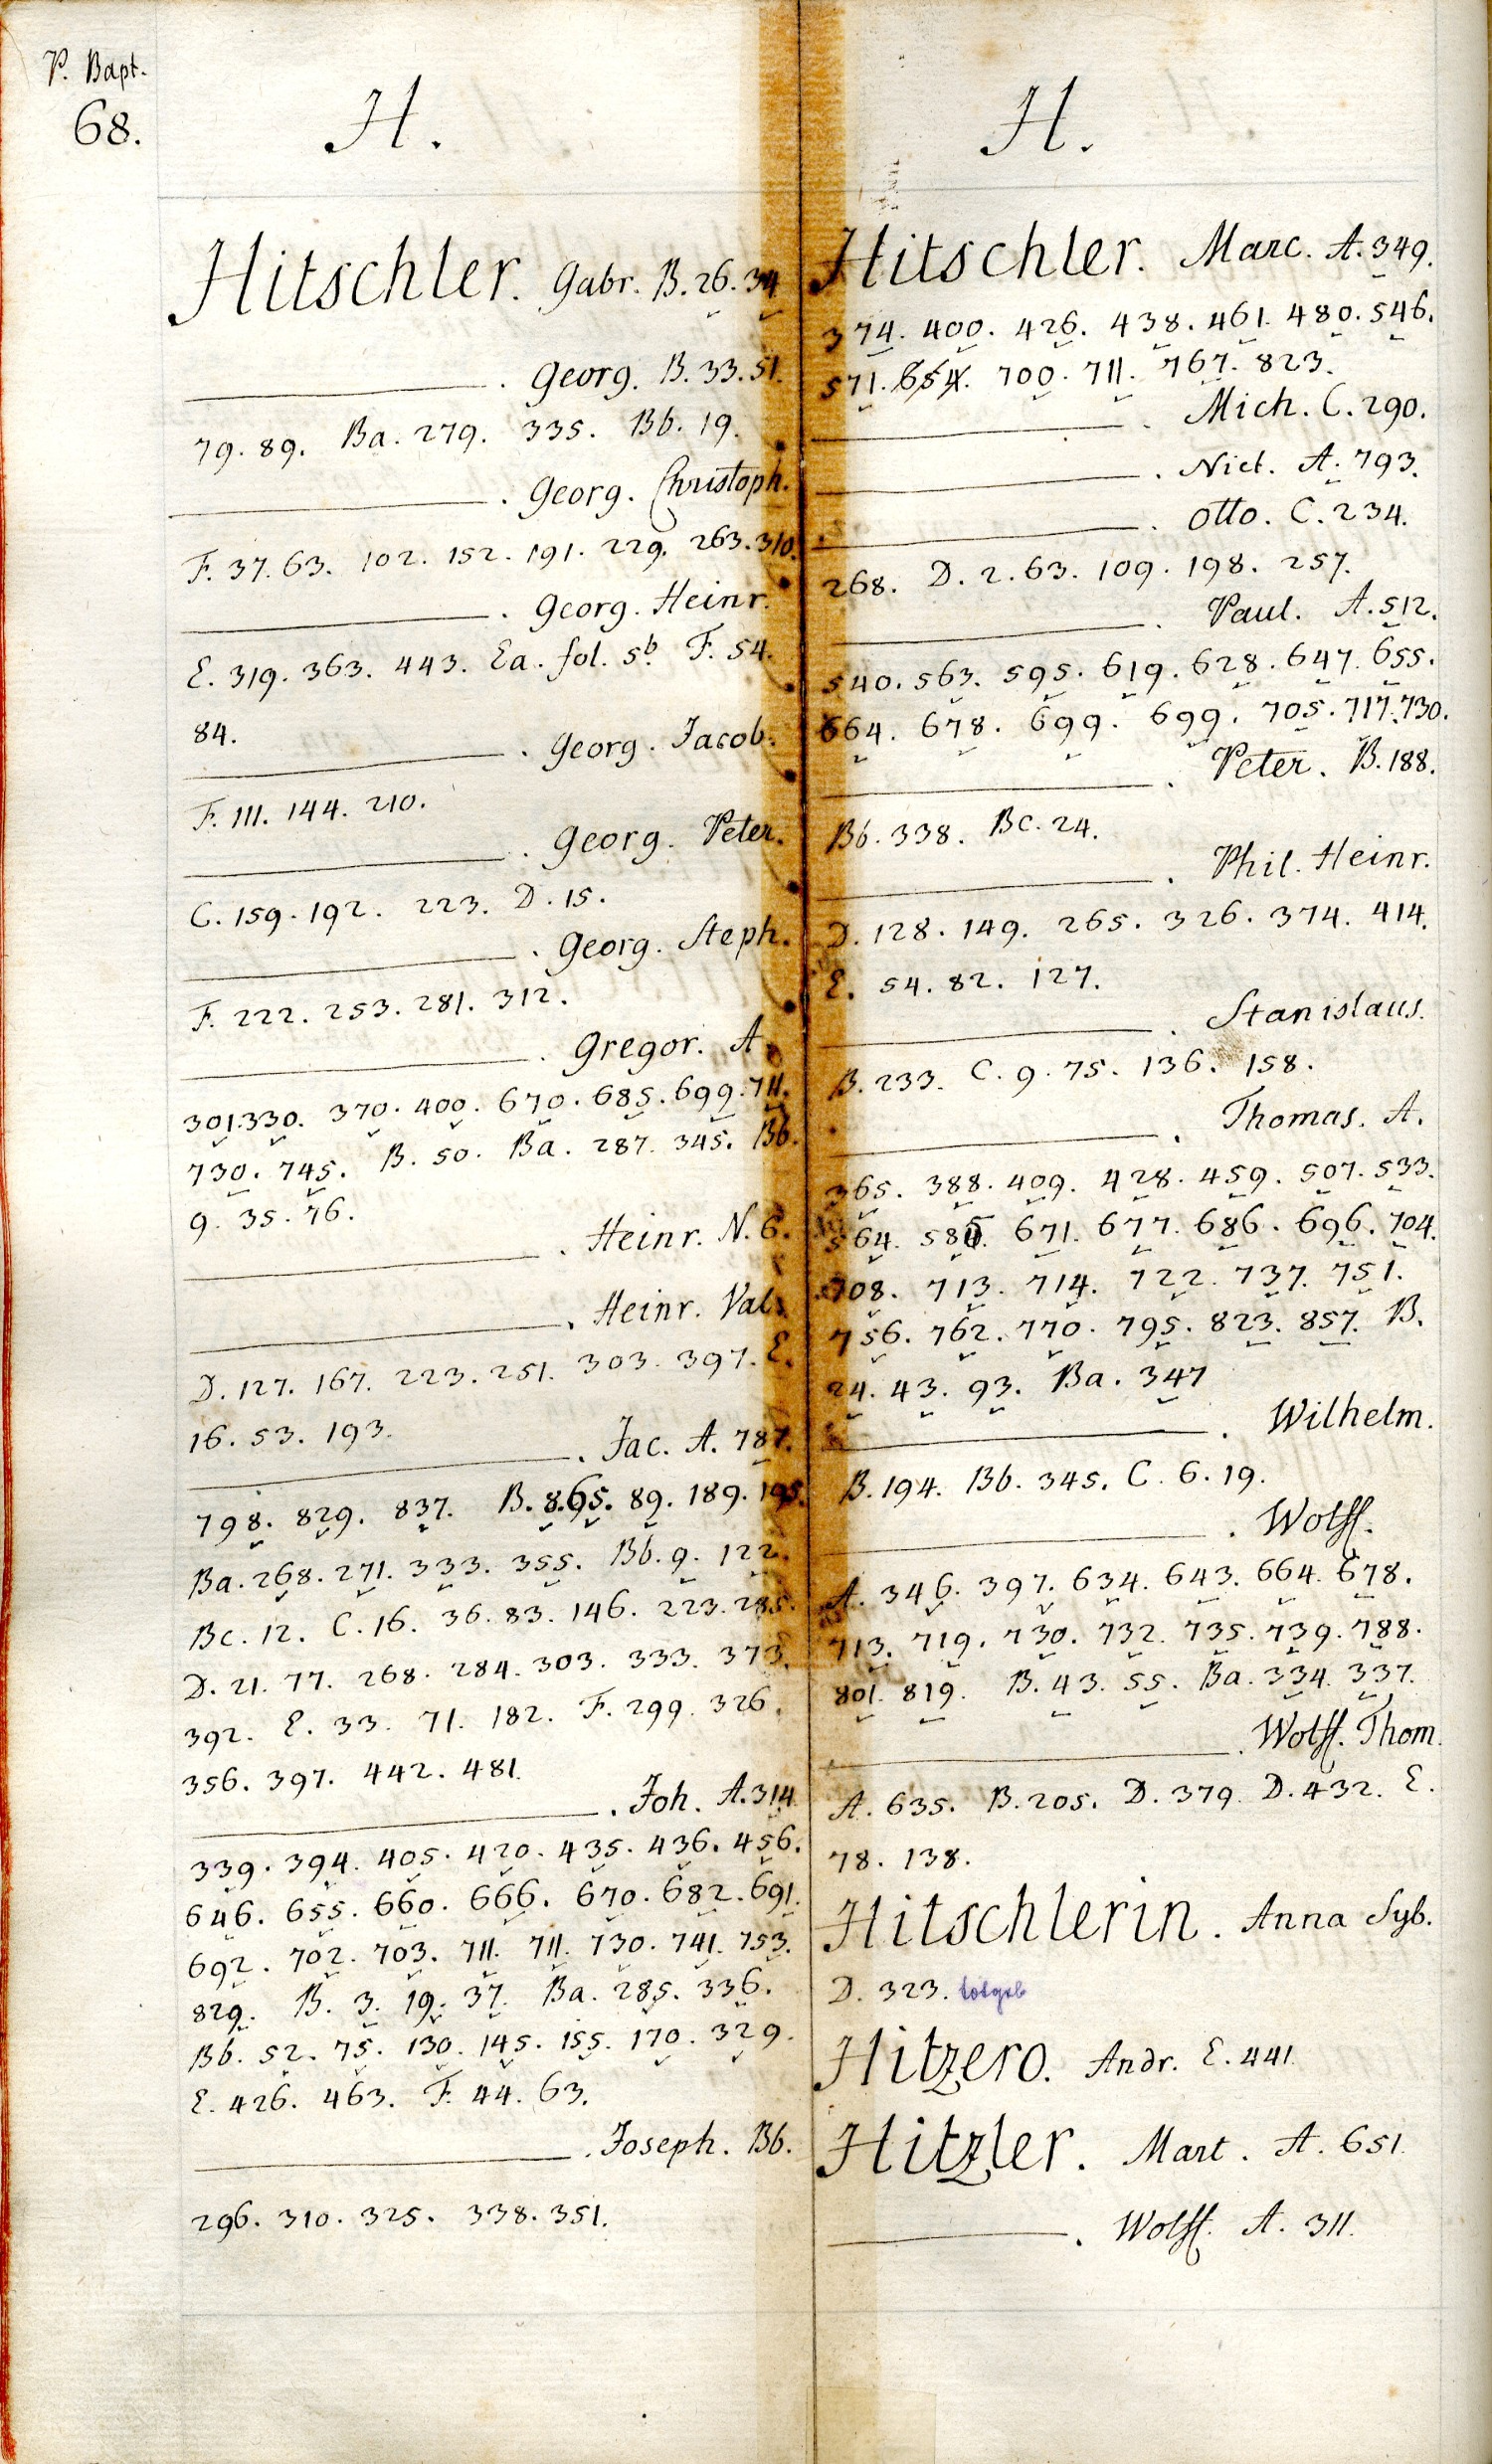 P. Bapt.
68.
H.
Hitschler. Gabr. B. 26. 34
. Georg. B. 33. 51.
79. 89. Ba. 279. 335. Bb. 19.
. Georg. Christoph.
F. 37. 63. 102. 152. 191. 229. 263. 310.
. Georg. Heinr.
E. 319. 363. 443. Ea. fol. 5b. F. 54.
84.
. Georg. Jacob.
F. 111. 144. 210.
. Georg. Peter.
C. 159. 192. 223. D. 15.
. Georg. Steph.
F. 222. 253. 281. 312.
. Gregor. A.
301. 330. 370. 400. 670. 685. 699. 711.
730. 745. B. 50. Ba. 287. 345. Bb.
9. 35. 76.
. Heinr. N. 6.
. Heinr. Val.
D. 127. 167. 223. 251. 303. 397. E.
16. 53. 193.
. Jac. A. 787.
798. 829. 837. B. 8. 65. 89. 189. 195.
Ba. 268. 271. 333. 355. Bb. 9. 122.
Bc. 12. C. 16. 36. 83. 146. 223. 285.
D. 21. 77. 268. 284. 303. 333. 373.
392. E. 33. 71. 182. F. 299. 326.
356. 397. 442. 481.
. Joh. A. 314.
339. 394. 405. 420. 435. 436. 456.
646. 655. 660. 666. 670. 682. 691.
692. 702. 703. 711. 711. 730. 741. 753.
829. B. 3. 19. 37. Ba. 285. 336.
Bb. 52. 75. 130. 145. 155. 170. 329.
E. 426. 463. F. 44. 63.
. Joseph. Bb.
296. 310. 325. 338. 351.
H.
Hitschler. Marc. A. 349.
374. 400. 426. 438. 461. 480. 546.
571. 654. 700. 711. 767. 823.
. Mich. C. 290.
. Nicl. A. 793.
. Otto. C. 234.
268. D. 2. 63. 109. 198. 257.
. Paul. A. 512.
540. 563. 595. 619. 628. 647. 655.
664. 678. 699. 699. 705. 717. 730.
. Peter. B. 188.
Bb. 338. Bc. 24.
. Phil. Heinr.
D. 128. 149. 265. 326. 374. 414.
E. 54. 82. 127.
. Stanislaus.
B. 233. C. 9. 75. 136. 158.
. Thomas. A.
365. 388. 409. 428. 459. 507. 533.
564. 671. 677. 686. 696. 704.
708. 713. 714. 722. 737. 751.
756. 762. 770. 795. 823. 857. B.
24. 43. 93. Ba. 347
. Wilhelm.
B. 194. Bb. 345. C. 6. 19.
. Wolff.
A. 346. 397. 634. 643. 664. 678.
713. 719. 730. 732. 735. 739. 788.
801. 819. B. 43. 55. Ba. 334. 337.
. Wolff. Thom.
A. 635. B. 205. D. 379. D. 432. E.
78. 138.
Hitschlerin. Anna Syb.
D. 323. totgeb
Hitzero. Andr. E. 441.
Hitzler. Mart. A. 651.
. Wolff. A. 311.